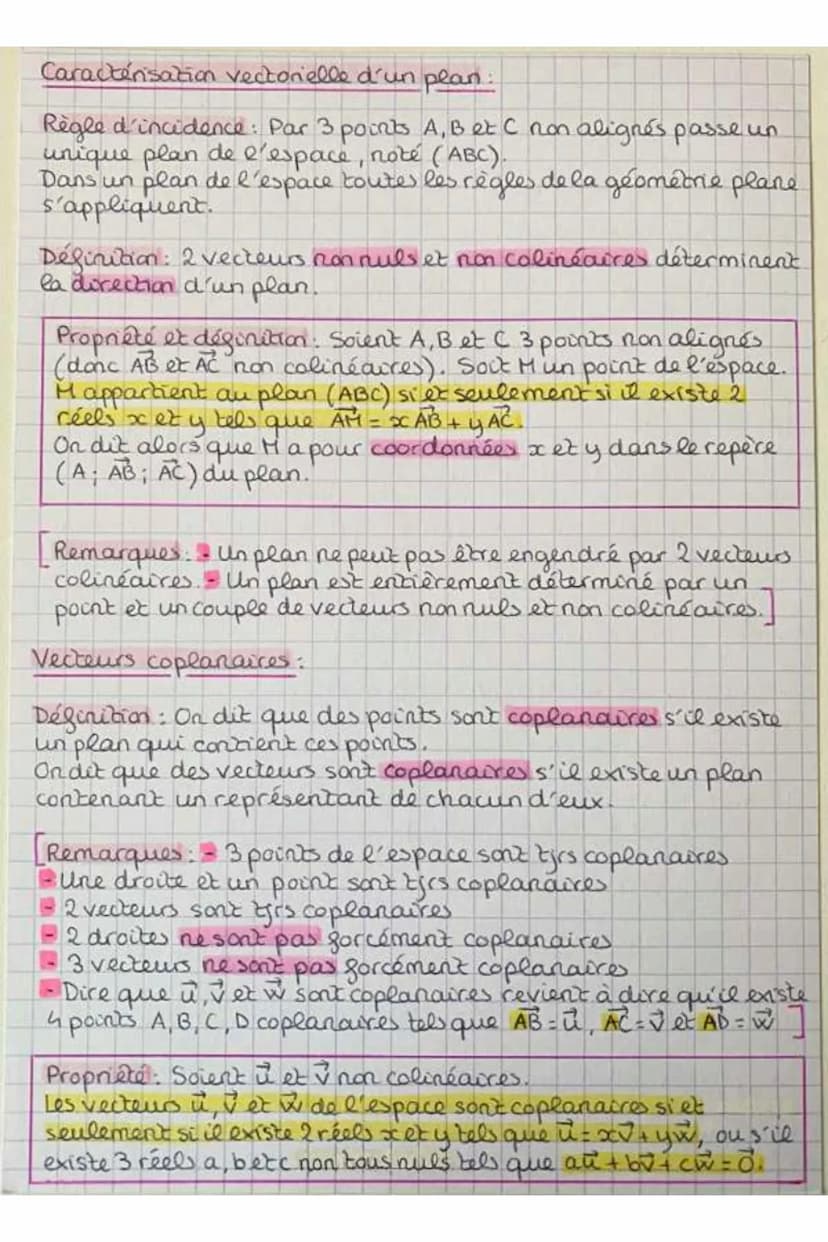 Caractérisation vectorielle d'un plan :
Règle d'incidence : Par 3 points A, B et C non alignés passe un
unique plan de l'espace, noté (ABC).
Dans un plan de l'espace toutes les règles de la géométrie plane
s'appliquent.
Définition : 2 vecteurs non nuls et non colinéaires déterminent
la direction d'un plan.
Propriété et définition : Soient A, B et C 3 points non alignés
(donc A⃗B⃗ et A⃗C⃗ non colinéaires). Soit M un point de l'espace.
M appartient au plan (ABC) si et seulement si il existe 2
réels x et y tels que A⃗M⃗ = x A⃗B⃗ + y A⃗C⃗.
On dit alors que M a pour coordonnées x et y dans le repère
(A ; A⃗B⃗ ; A⃗C⃗) du plan.
[Remarques : - Un plan ne peut pas être engendré par 2 vecteurs
colinéaires. - Un plan est entièrement déterminé par un
point et un couple de vecteurs non nuls et non colinéaires.]
Vecteurs coplanaires :
Définition : On dit que des points sont coplanaires s'il existe
un plan qui contient ces points.
On dit que des vecteurs sont coplanaires s'il existe un plan
contenant un représentant de chacun d'eux.
[Remarques : - 3 points de l'espace sont tjrs coplanaires
- Une droite et un point sont tjrs coplanaires
- 2 vecteurs sont tjrs coplanaires
- 2 droites ne sont pas forcément coplanaires
- 3 vecteurs ne sont pas forcément coplanaires
- Dire que u⃗, v⃗ et w⃗ sont coplanaires revient à dire qu'il existe
4 points A, B, C, D coplanaires tels que A⃗B⃗ = u⃗, A⃗C⃗ = v⃗ et A⃗D⃗ = w⃗]
Propriété : Soient u⃗ et v⃗ non colinéaires.
Les vecteurs u⃗, v⃗ et w⃗ de l'espace sont coplanaires si et
seulement si il existe 2 réels x et y tels que u⃗ = xv⃗ + yw⃗, ou s'il
existe 3 réels a, b et c non tous nuls tels que au⃗ + bv⃗ + cw⃗ = 0⃗.